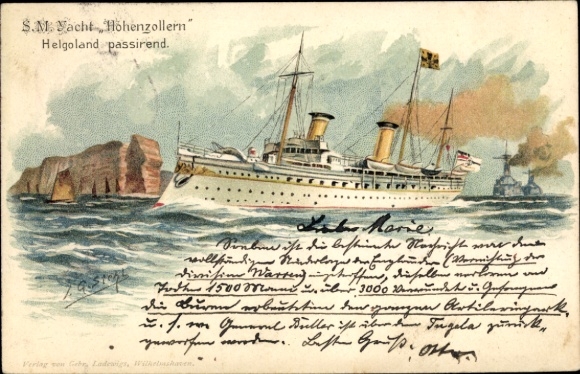 S. M. Yacht „Hohenzollern"
Helgoland passirend.
Liebe Marie!
Soeben ist die bestimmte Nachricht von dem
vollständigen Niederlagen der Engländer (Vernichtung der
division Warren) eingetroffen, dieselben verloren an
Todten 1500 Mann u. über 3000 Verwundet u. Gefangene
die Buren erbeuteten den ganzen Artilleriepark
u. s. w. General Buller ist über den Tugela zurück-
geworfen worden. Besten Gruß. Otto.
Verlag von Gebr. Ladewigs, Wilhelmshaven.